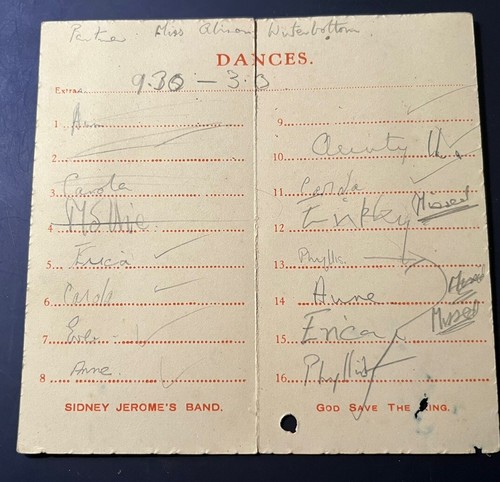 Partner Miss Alison Winterbottom
DANCES.
Extras 9.30 – 3.0
1 Ann
2
3 Carola
4 Mollie
5 Erica
6 Carola
7
8 Anne
SIDNEY JEROME'S BAND.
9
10
11 Carola
12 Missed
13 Phyllis
14 Anne Missed
15 Erica Missed
16 Phyllis
GOD SAVE THE KING.